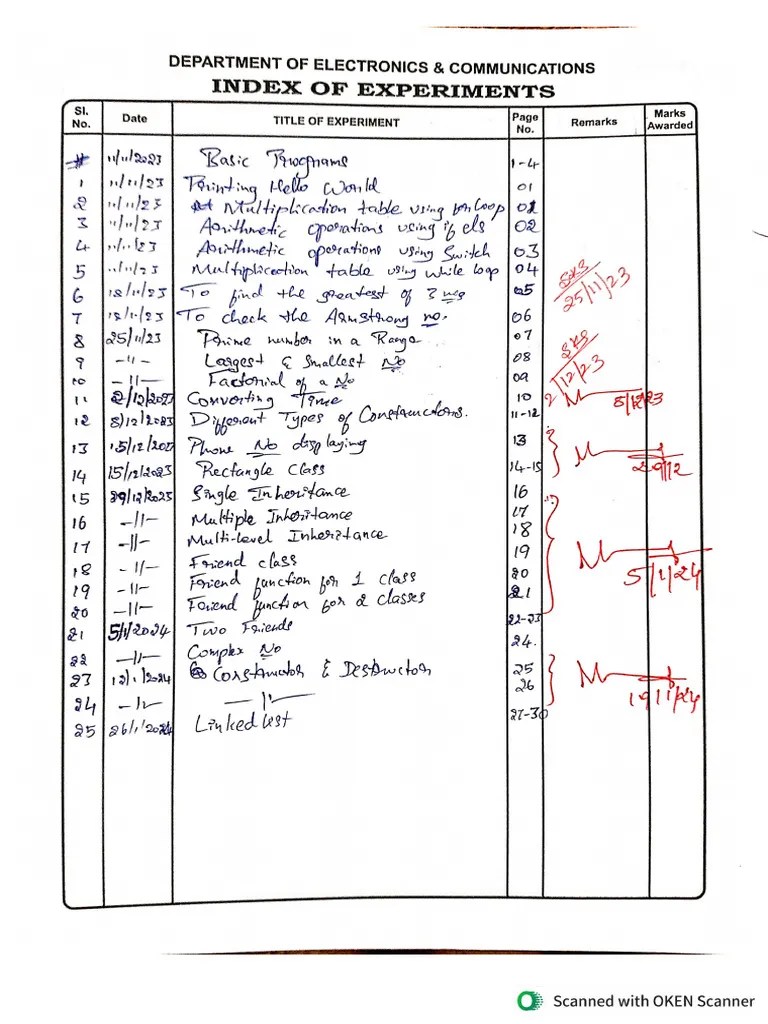 DEPARTMENT OF ELECTRONICS & COMMUNICATIONS
INDEX OF EXPERIMENTS
Sl. No. Date TITLE OF EXPERIMENT Page No. Remarks Marks Awarded
# 11/11/2023 Basic Programs 1-4
1 11/11/23 Printing Hello World 01
2 11/11/23 Multiplication table using for loop 02
3 11/11/23 Arithmetic operations using if els 02
4 11/11/23 Arithmetic operations using Switch 03
5 11/11/23 Multiplication table using while loop 04
6 18/11/23 To find the greatest of 3 nos 05 25/11/23
7 18/11/23 To check the Armstrong no. 06
8 25/11/23 Prime number in a Range 07
9 -11- Largest & Smallest No 08
10 -11- Factorial of a No 09 1/12/23
11 2/12/2023 Converting Time 10 8/12/23
12 8/12/2023 Different Types of Constructors. 11-12
13 15/12/2023 Phone No displaying 13
14 15/12/2023 Rectangle class 14-15 29/12
15 29/12/2023 Single Inheritance 16
16 -11- Multiple Inheritance 17
17 -11- Multi-level Inheritance 18
18 -11- Friend class 19
19 -11- Friend function for 1 class 20 5/1/24
20 -11- Friend function for 2 classes 21
21 5/1/2024 Two Friends 22-23
22 -11- Complex No 24.
23 12/1/2024 Constructor & Destructor 25
24 -11- -11- 26 19/1/24
25 26/1/2024 Linked list 27-30
Scanned with OKEN Scanner